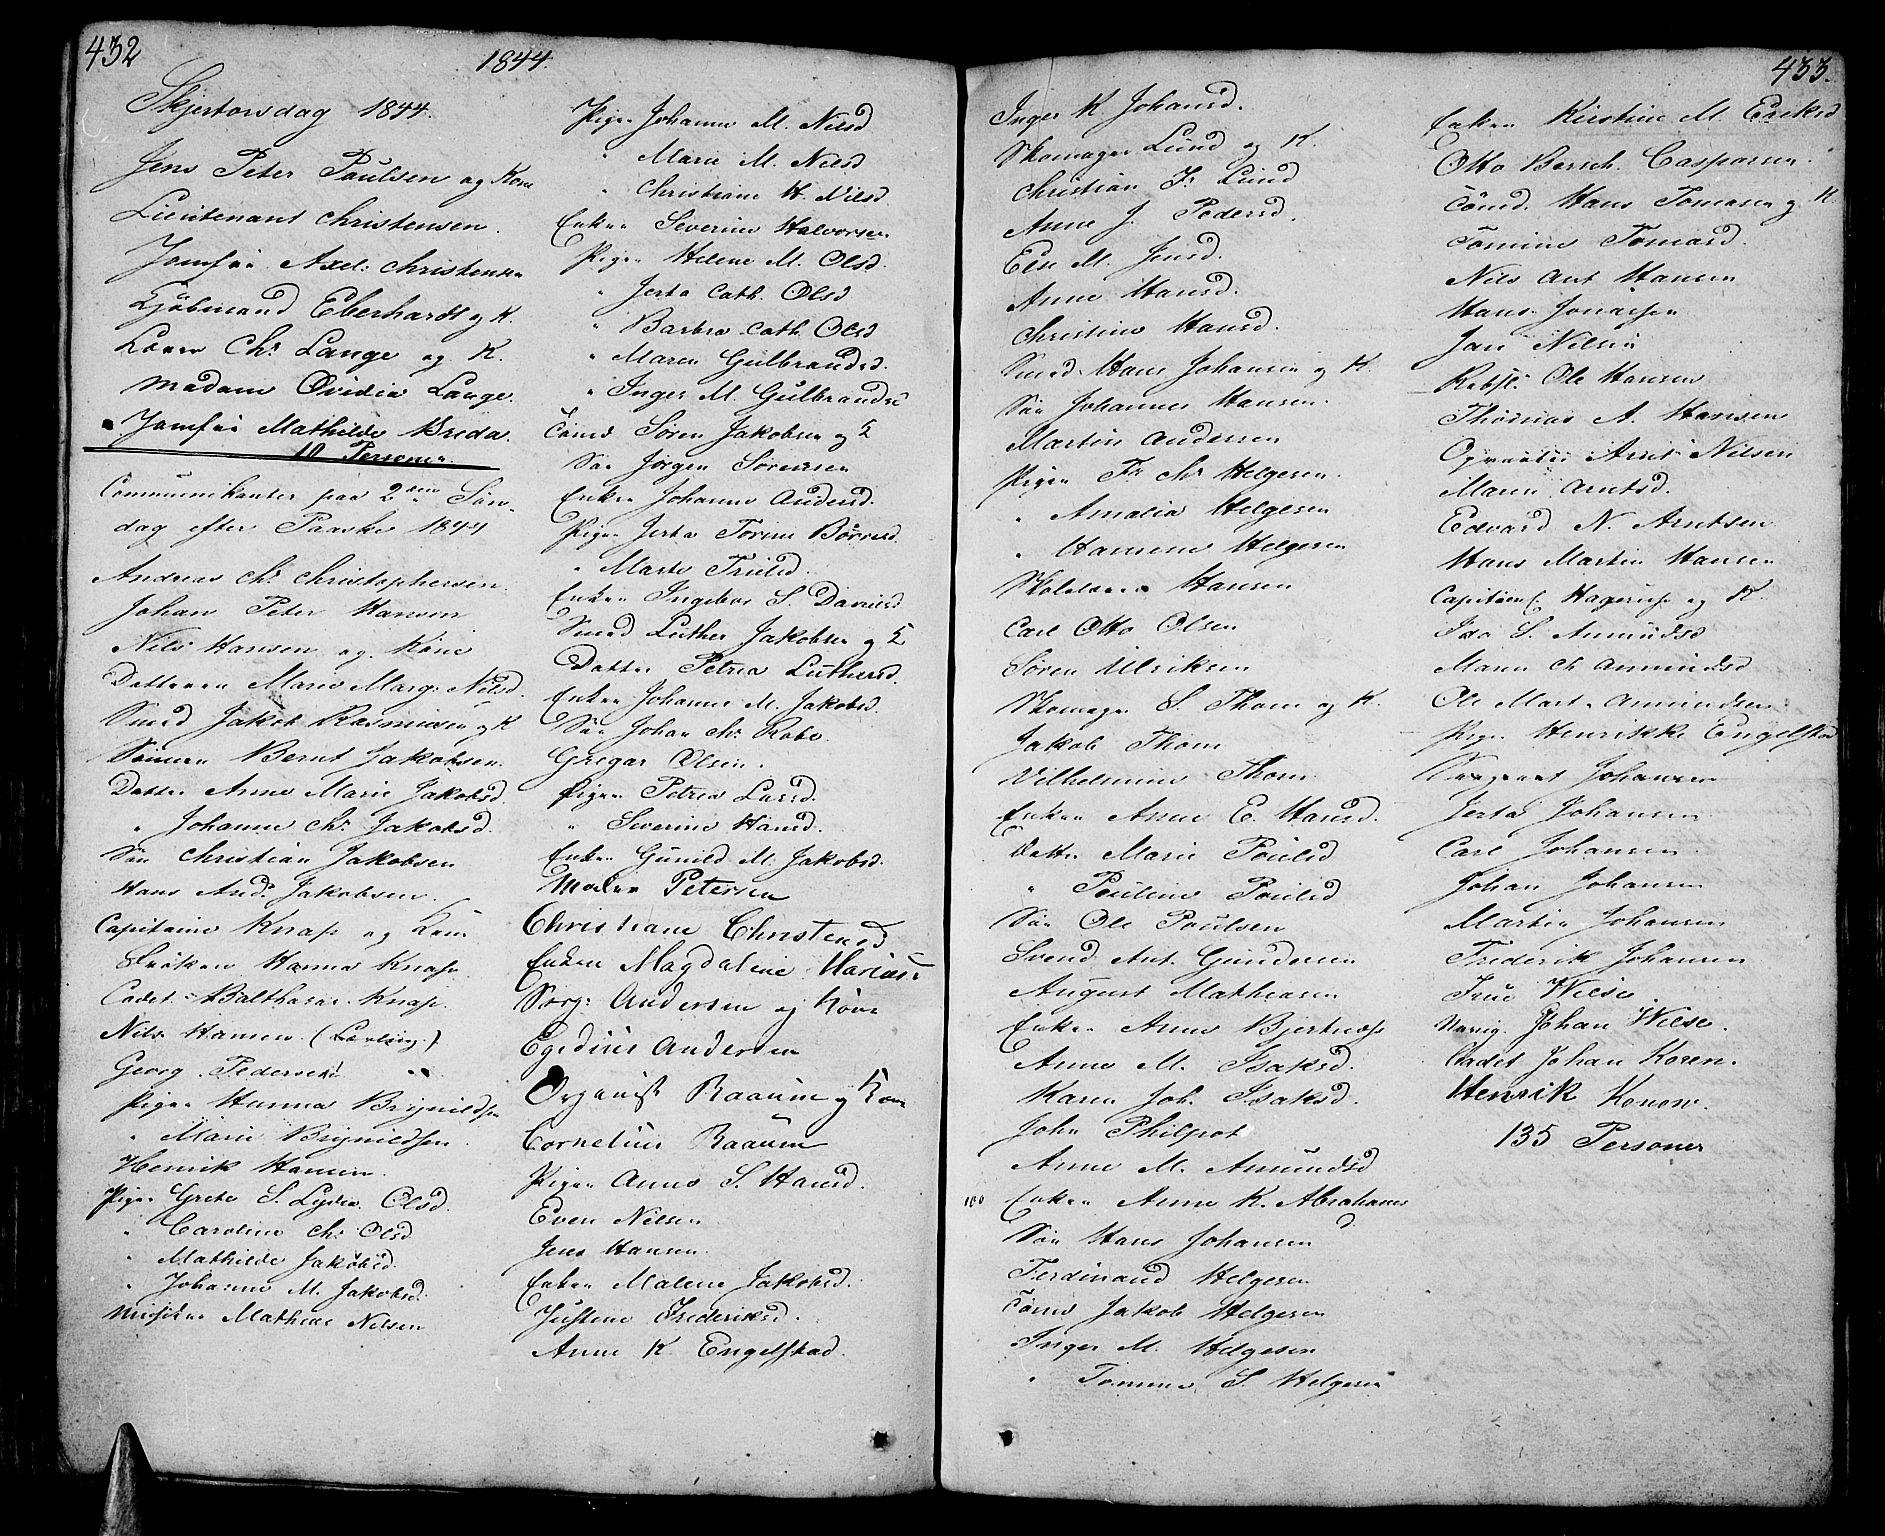 432
1844.
Skjertorsdag 1844.
Jens Peter Paulsen og Kone
Lieutenant Christensen.
Jomfrü Axel: Christensen
Kjöbmand Eberhardt og K.
Chr Lange og K.
Madame Ovidia Lange.
Jomfrü Mathilde Breda.
10 Personer.
Communikanter paa 2den Søn-
dag efter Paaske 1844
Andreas Chr Christophersen.
Johan Peter Hansen
Nils Hansen og Kone
Datteren Marie Marg. Nilsd.
Smed Jakob Rasmusen og K
Sønnen Bernt Jakobsen.
Datter Anne Marie Jakobsd.
" Johanne Chr Jakobsd.
Søn Christian Jakobsen
Hans Andr Jakobsen.
Capitaine Knap og Kone
Frøken Hanna Knap
Cadet Balthazar Knap.
Nils Hansen (Lærling)
Georg Pedersen "
Pigen Hanna Brynildsen
" Marie Brynildsen.
Henrik Hansen.
Pigen Grete S. Lydia Olsd.
" Caroline Chr Olsd
" Mathilde Jakobsd.
" Johanne M. Jakobsd.
Mathias Nilsen
Pigen Johanne M. Nilsd
" Marie M. Nilsd
" Christiane H. Nilsd
Enken Severine Halvorsen
Pigen Helene M. Olsd.
" Jerta Cath. Olsd
" Barbra Cath. Olsd
" Maren Gulbrandsd.
" Inger M. Gulbrandsd
Tömd Søren Jakobsen og K
Søn Jørgen Sørensen
Enken Johanne Andersd.
Pigen Jerta Torine Börresd.
" Marte Trulsd.
Enken Ingebor S. Danielsd
Smed Luther Jakobsen og K
Datter Petrea Luthersd.
Enken Johanne M. Jakobsd.
Søn Johan Chr Rabe.
Gregar Olsen.
Pigen Petrea Larsd.
" Severine Hansd.
Enken Gunild M. Jakobsd.
Petersen
Christiane Christensd
Enken Magdalene Mariusd
Sorg: Andersen og Kone
Egidius Andersen
Organist Raaum og Kone
Cornelius Raaum
Pigen Anne S. Hansd.
Even Nilsen
Jens Hansen.
Enken Malene Jakobsd.
Justine Frederiksd.
Anne K Engelstad.
433.
Inger K Johansd.
Skomager Lund og K.
Christian Fr Lund
Anne J. Pedersd.
Else M. Jensd.
Anne Hansd.
Christine Hansd.
Smed Hans Johansen og K.
Søn Johannes Hansen.
Martin Andersen
Pigen Fr Chr Helgesen.
" Amalia Helgesen
" Hansine Helgesen
Skolelærer Hansen
Carl Otto Olsen
Søren Ulriksen
Skomager S. Thom og K.
Jakob Thom
Vilhelmine Thom
Enken Anne E. Hansd.
Datter Marie Poulsd
" Pouline Poulsd
Søn Ole Poulsen
Svend Ant. Gundersen
August Mathiesen
Enken Anne Bjertnæs
Anne M. Isaksd.
Karen Joh. Isaksd.
John Philpot
Anne M. Amundsd
100 Enken Anne K. Abrahamsd
Søn Hans Johansen
Ferdinand Helgesen
Tömd Jakob Helgesen
Inger M. Helgesen
" Tomine S. Helgesen
Enken Kirstine M. Eriksd
Otto Bernh. Caspersen.
Tömd. Hans Tomasen og K.
Tomine Tomasd.
Nils Ant Hansen
Hans Jonassen
Jan Nilsen
Rebsl: Ole Hansen
Thomas A. Hansen
Opvarter Arnt Nilsen
Maren Arntsd.
Edvard N. Arntsen
Hans Martin Hansen
Capitaine Hagerup og K.
Isa S. Amundsd
Maren Ch Amundsd
Ole Mart. Amundsen
Pigen Henrikke Engelstad
Sergeant Johansen
Jerta Johansen
Carl Johansen.
Johan Johansen
Martin Johansen
Frederik Johansen
Frue Wilse.
Navig. Johan Wilse.
Cadet Johan Koren.
Henrik Konow.
135 Personer